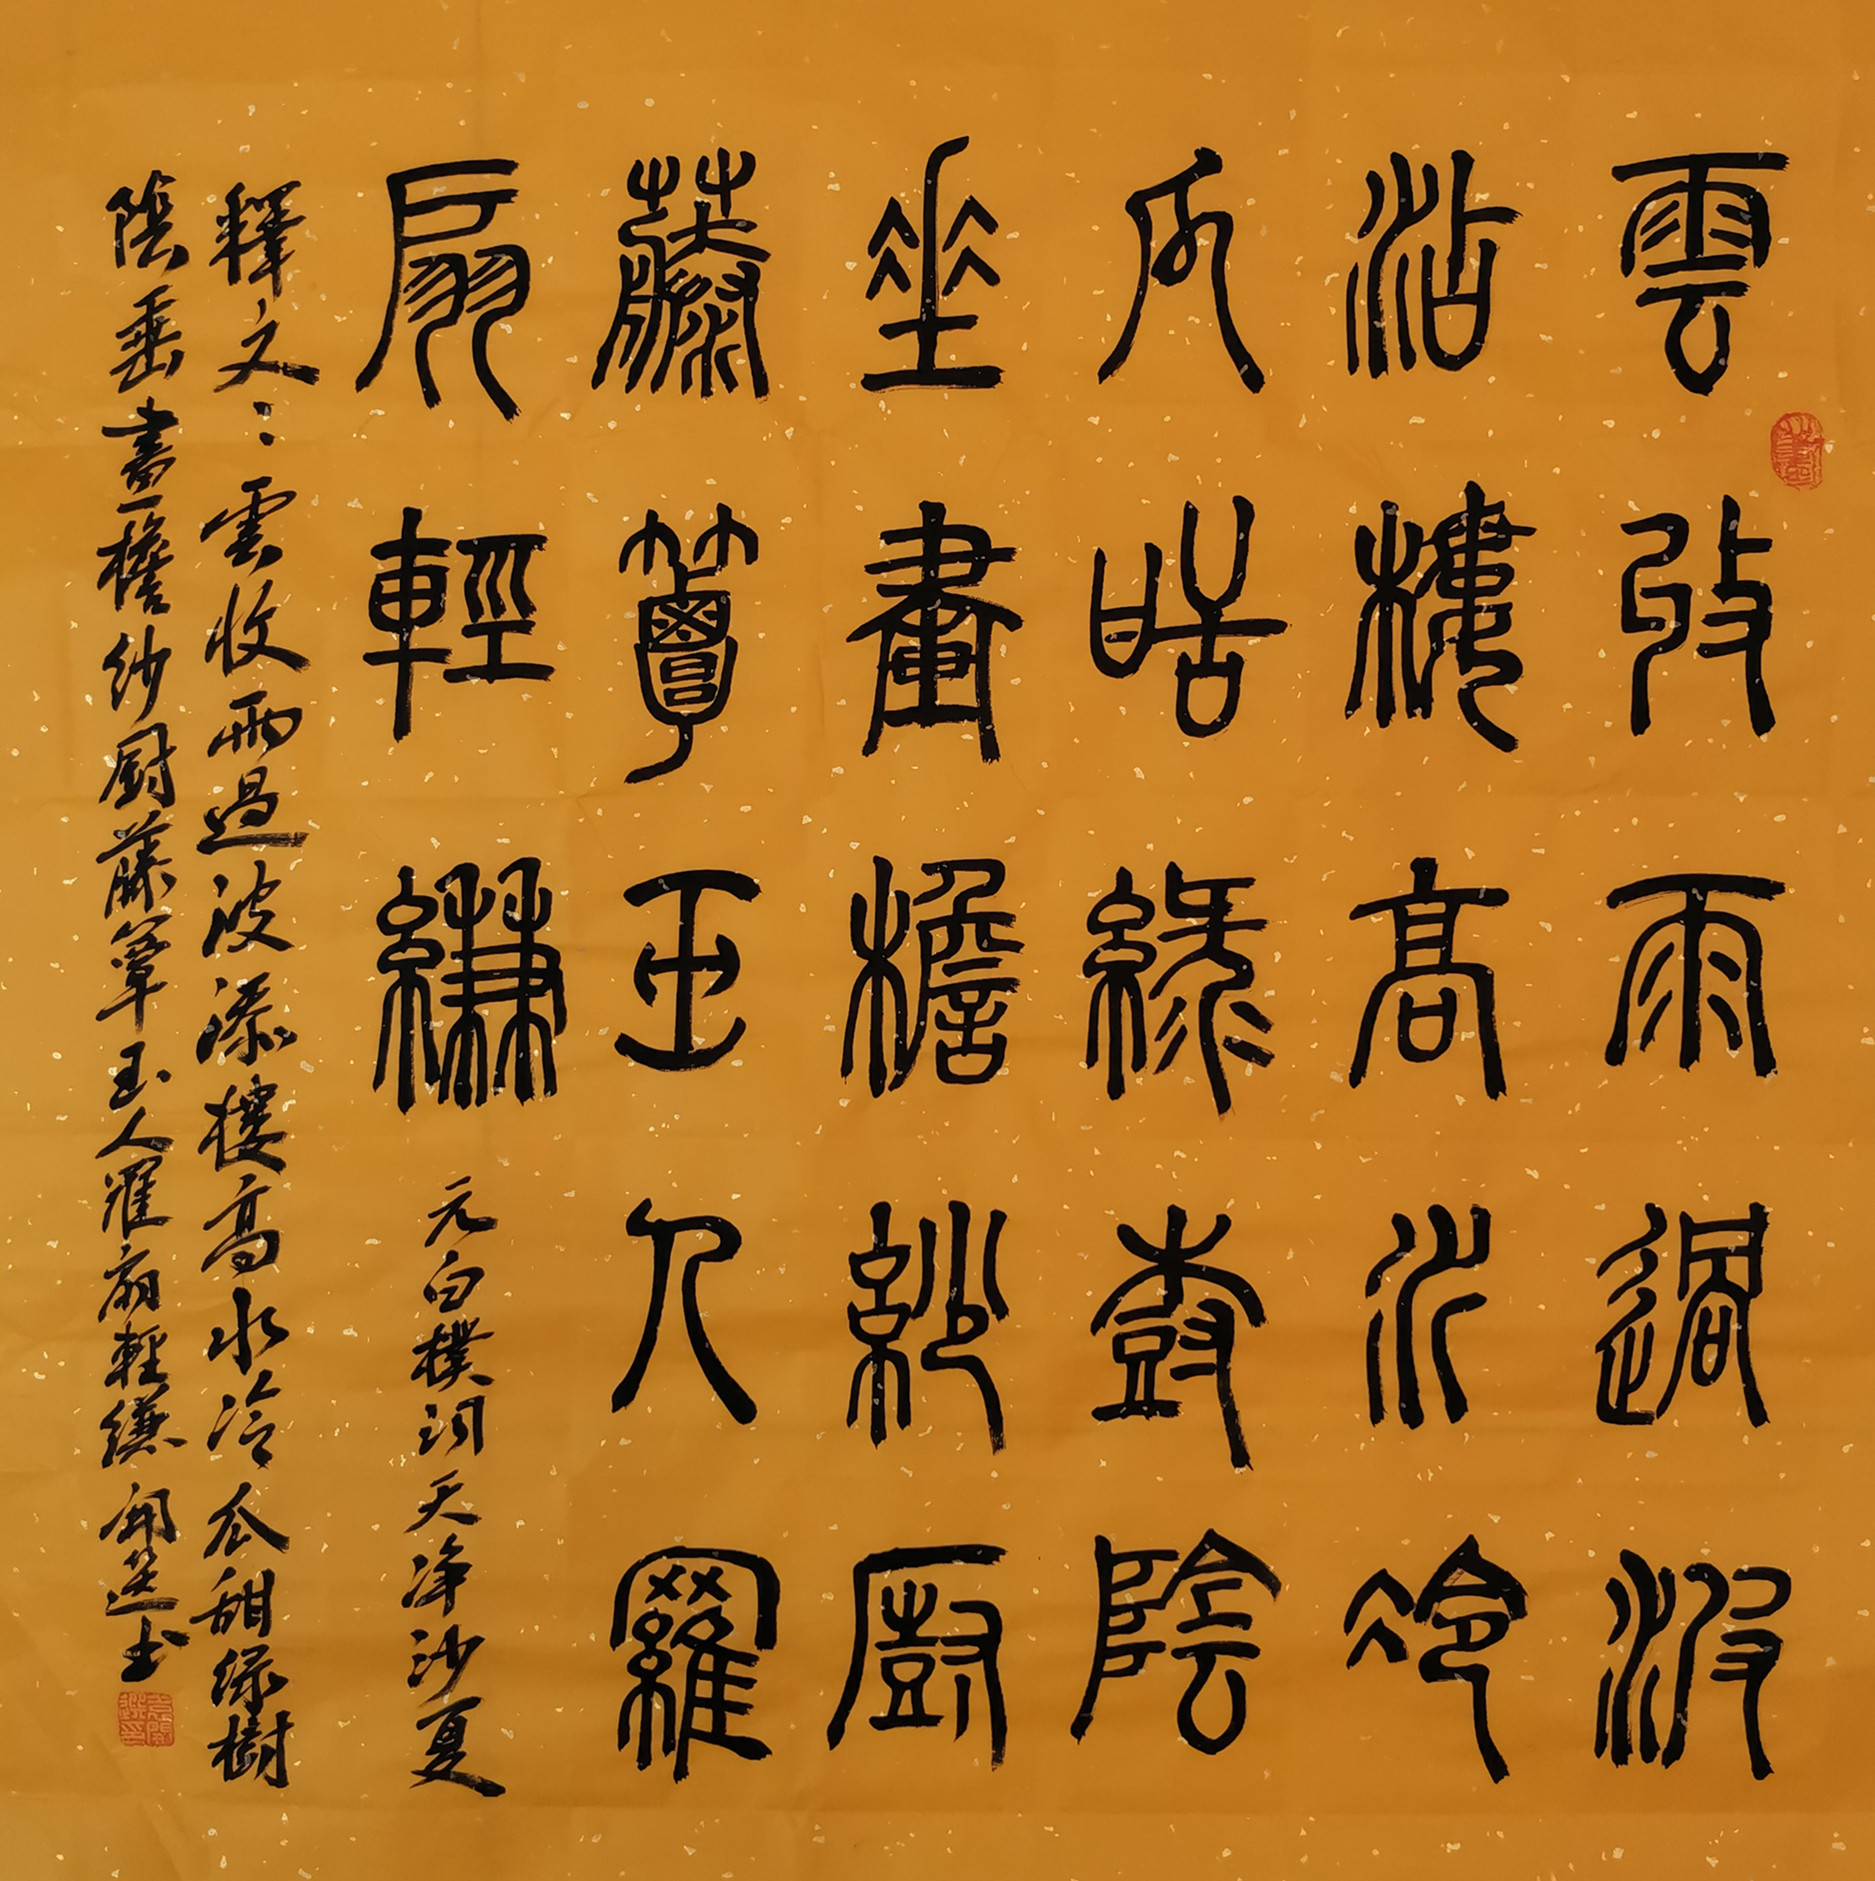 雲收雨過波
沾樓高水冷
瓜甜綠樹陰
垂畫檐紗廚
藤簟玉人羅
扇輕縑
元白樸詞天净沙夏
釋文：雲收雨過波添樓高水冷瓜甜綠樹
陰垂畫檐紗厨藤簟玉人羅扇輕縑